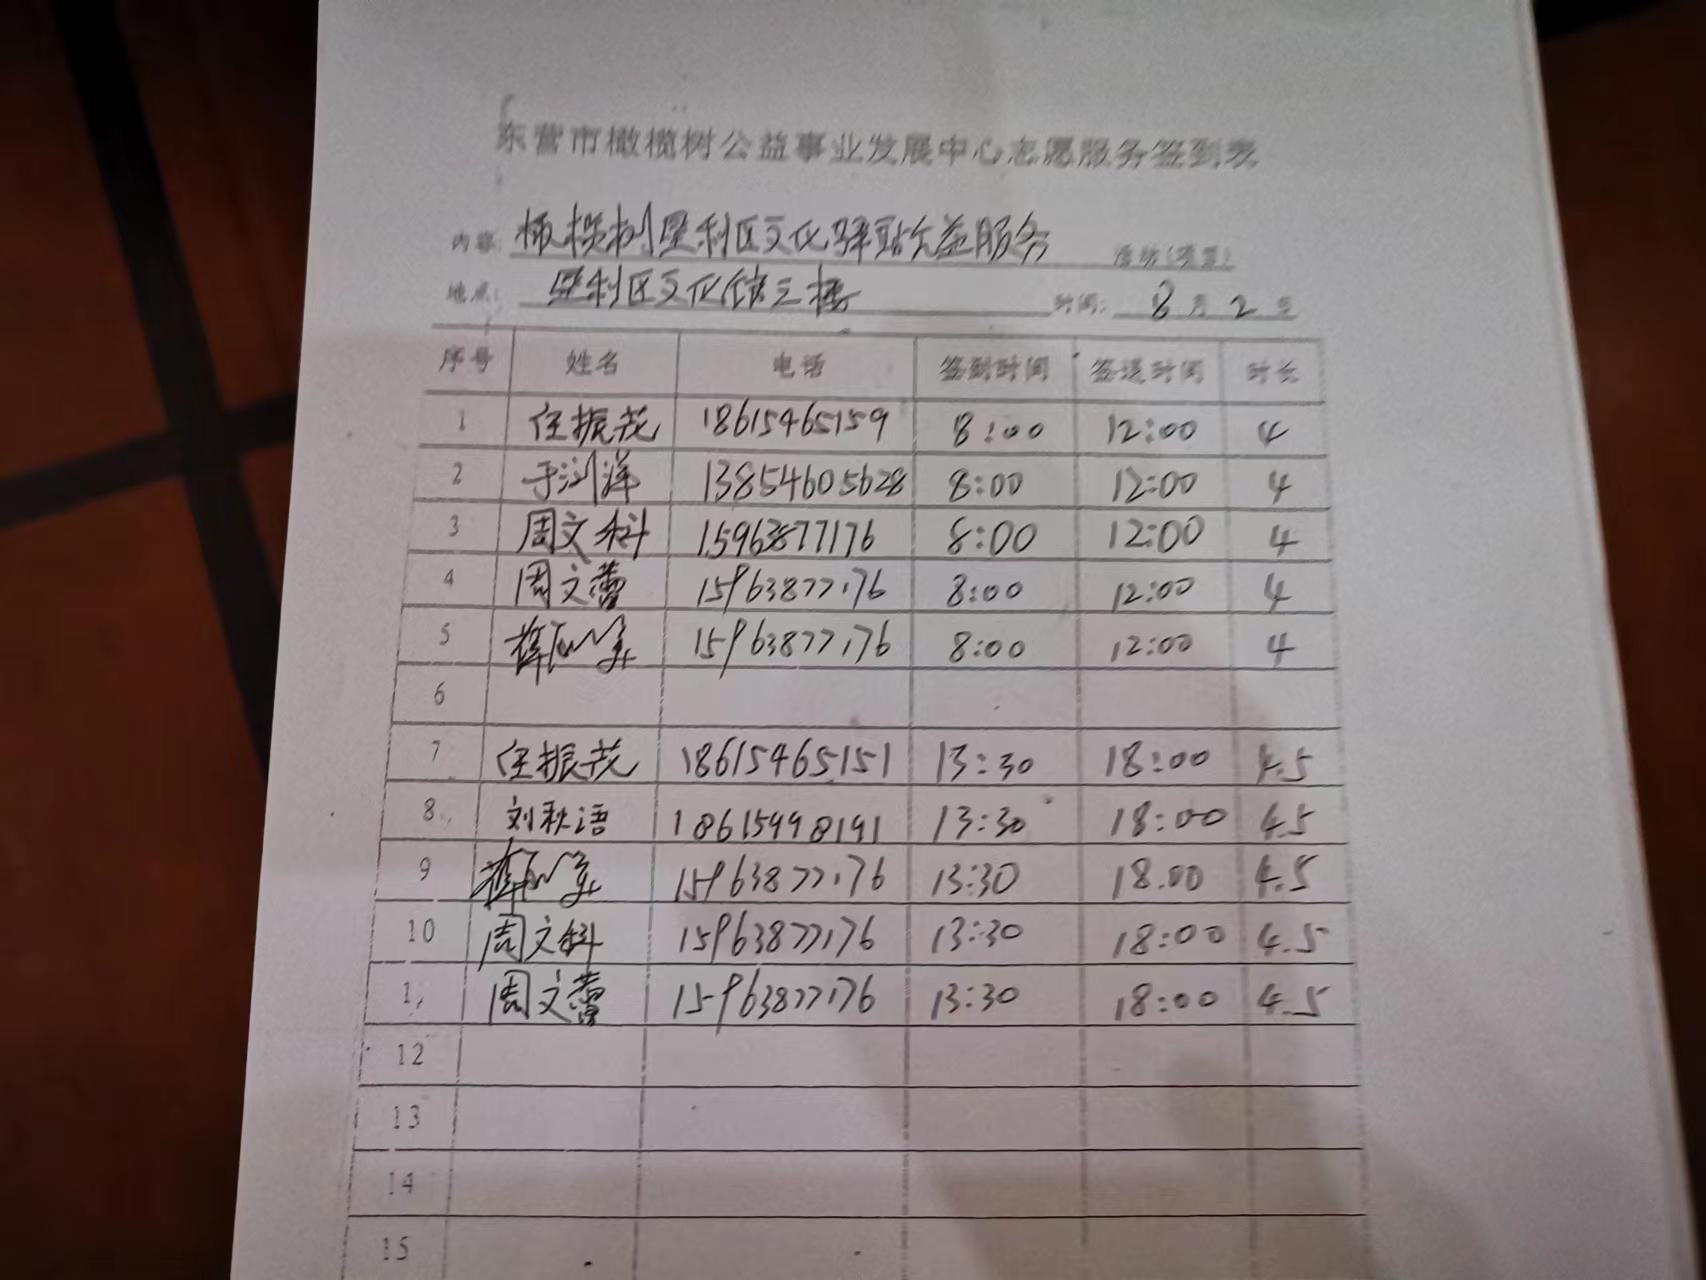 东营市橄榄树公益事业发展中心志愿服务签到表
内容: 橄榄树垦利区文化驿站公益服务 活动(项目)
地点: 垦利区文化馆三楼 时间: 8月2日
序号 姓名 电话 签到时间 签退时间 时长
1 任振茂 18615465159 8:00 12:00 4
2 于浏洋 13854605628 8:00 12:00 4
3 周文科 15963877176 8:00 12:00 4
4 周文蕾 15963877176 8:00 12:00 4
5 15963877176 8:00 12:00 4
6
7 任振茂 18615465151 13:30 18:00 4.5
8 刘秋语 18615998191 13:30 18:00 4.5
9 15963877176 13:30 18.00 4.5
10 周文科 15963877176 13:30 18:00 4.5
1 周文蕾 15963877176 13:30 18:00 4.5
12
13
14
15